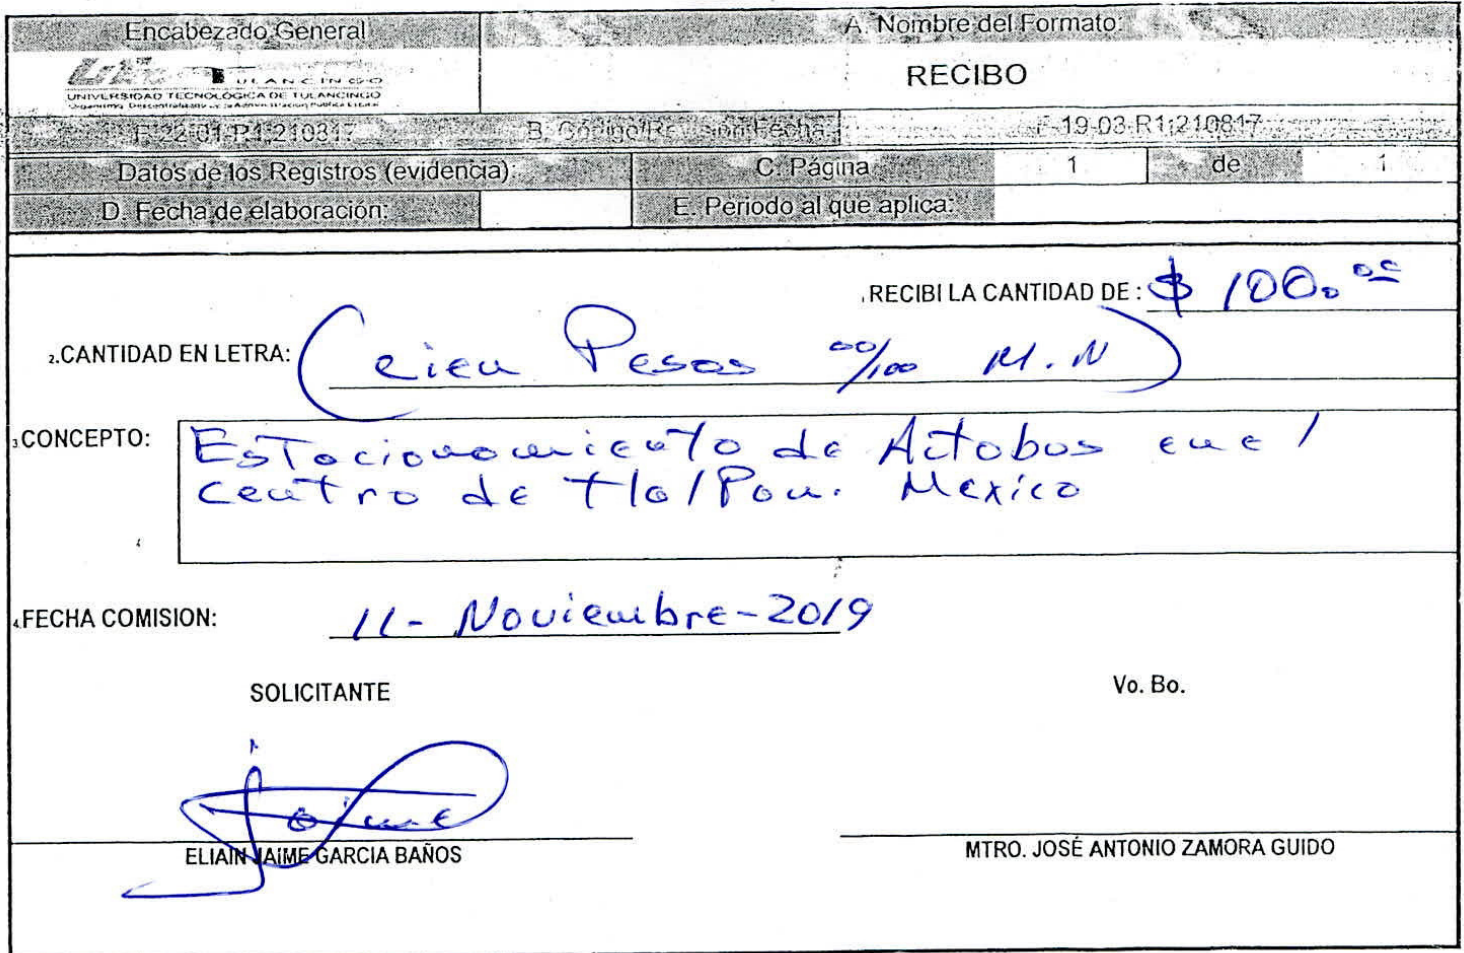 Encabezado General
A. Nombre del Formato:
TULANCINGO
UNIVERSIDAD TECNOLÓGICA DE TULANCINGO
RECIBO
F-22-01-R1;210817
B. Código/Revisión/Fecha:
F-19-03-R1;210817
Datos de los Registros (evidencia):
C. Página
1
de
1
D. Fecha de elaboración:
E. Periodo al que aplica:
1.RECIBI LA CANTIDAD DE: $ 100.00
2.CANTIDAD EN LETRA: (cien Pesos 00/100 M.N)
3.CONCEPTO: Estacionamiento de Autobus en el
centro de Tlalpan. Mexico
4.FECHA COMISION: 11-Noviembre-2019
SOLICITANTE
Vo. Bo.
Jaime
ELIAIN JAIME GARCIA BAÑOS
MTRO. JOSÉ ANTONIO ZAMORA GUIDO